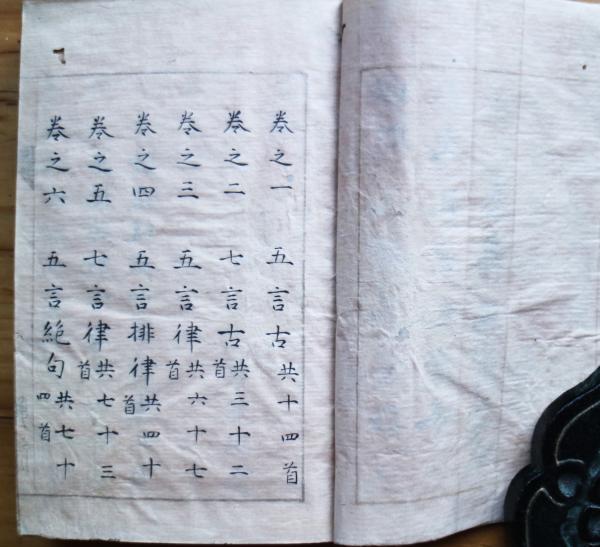 卷之一 五言古共十四首
卷之二 七言古共三十二首
卷之三 五言律共六十七首
卷之四 五言排律共四十首
卷之五 七言律共七十三首
卷之六 五言絕句共七十四首